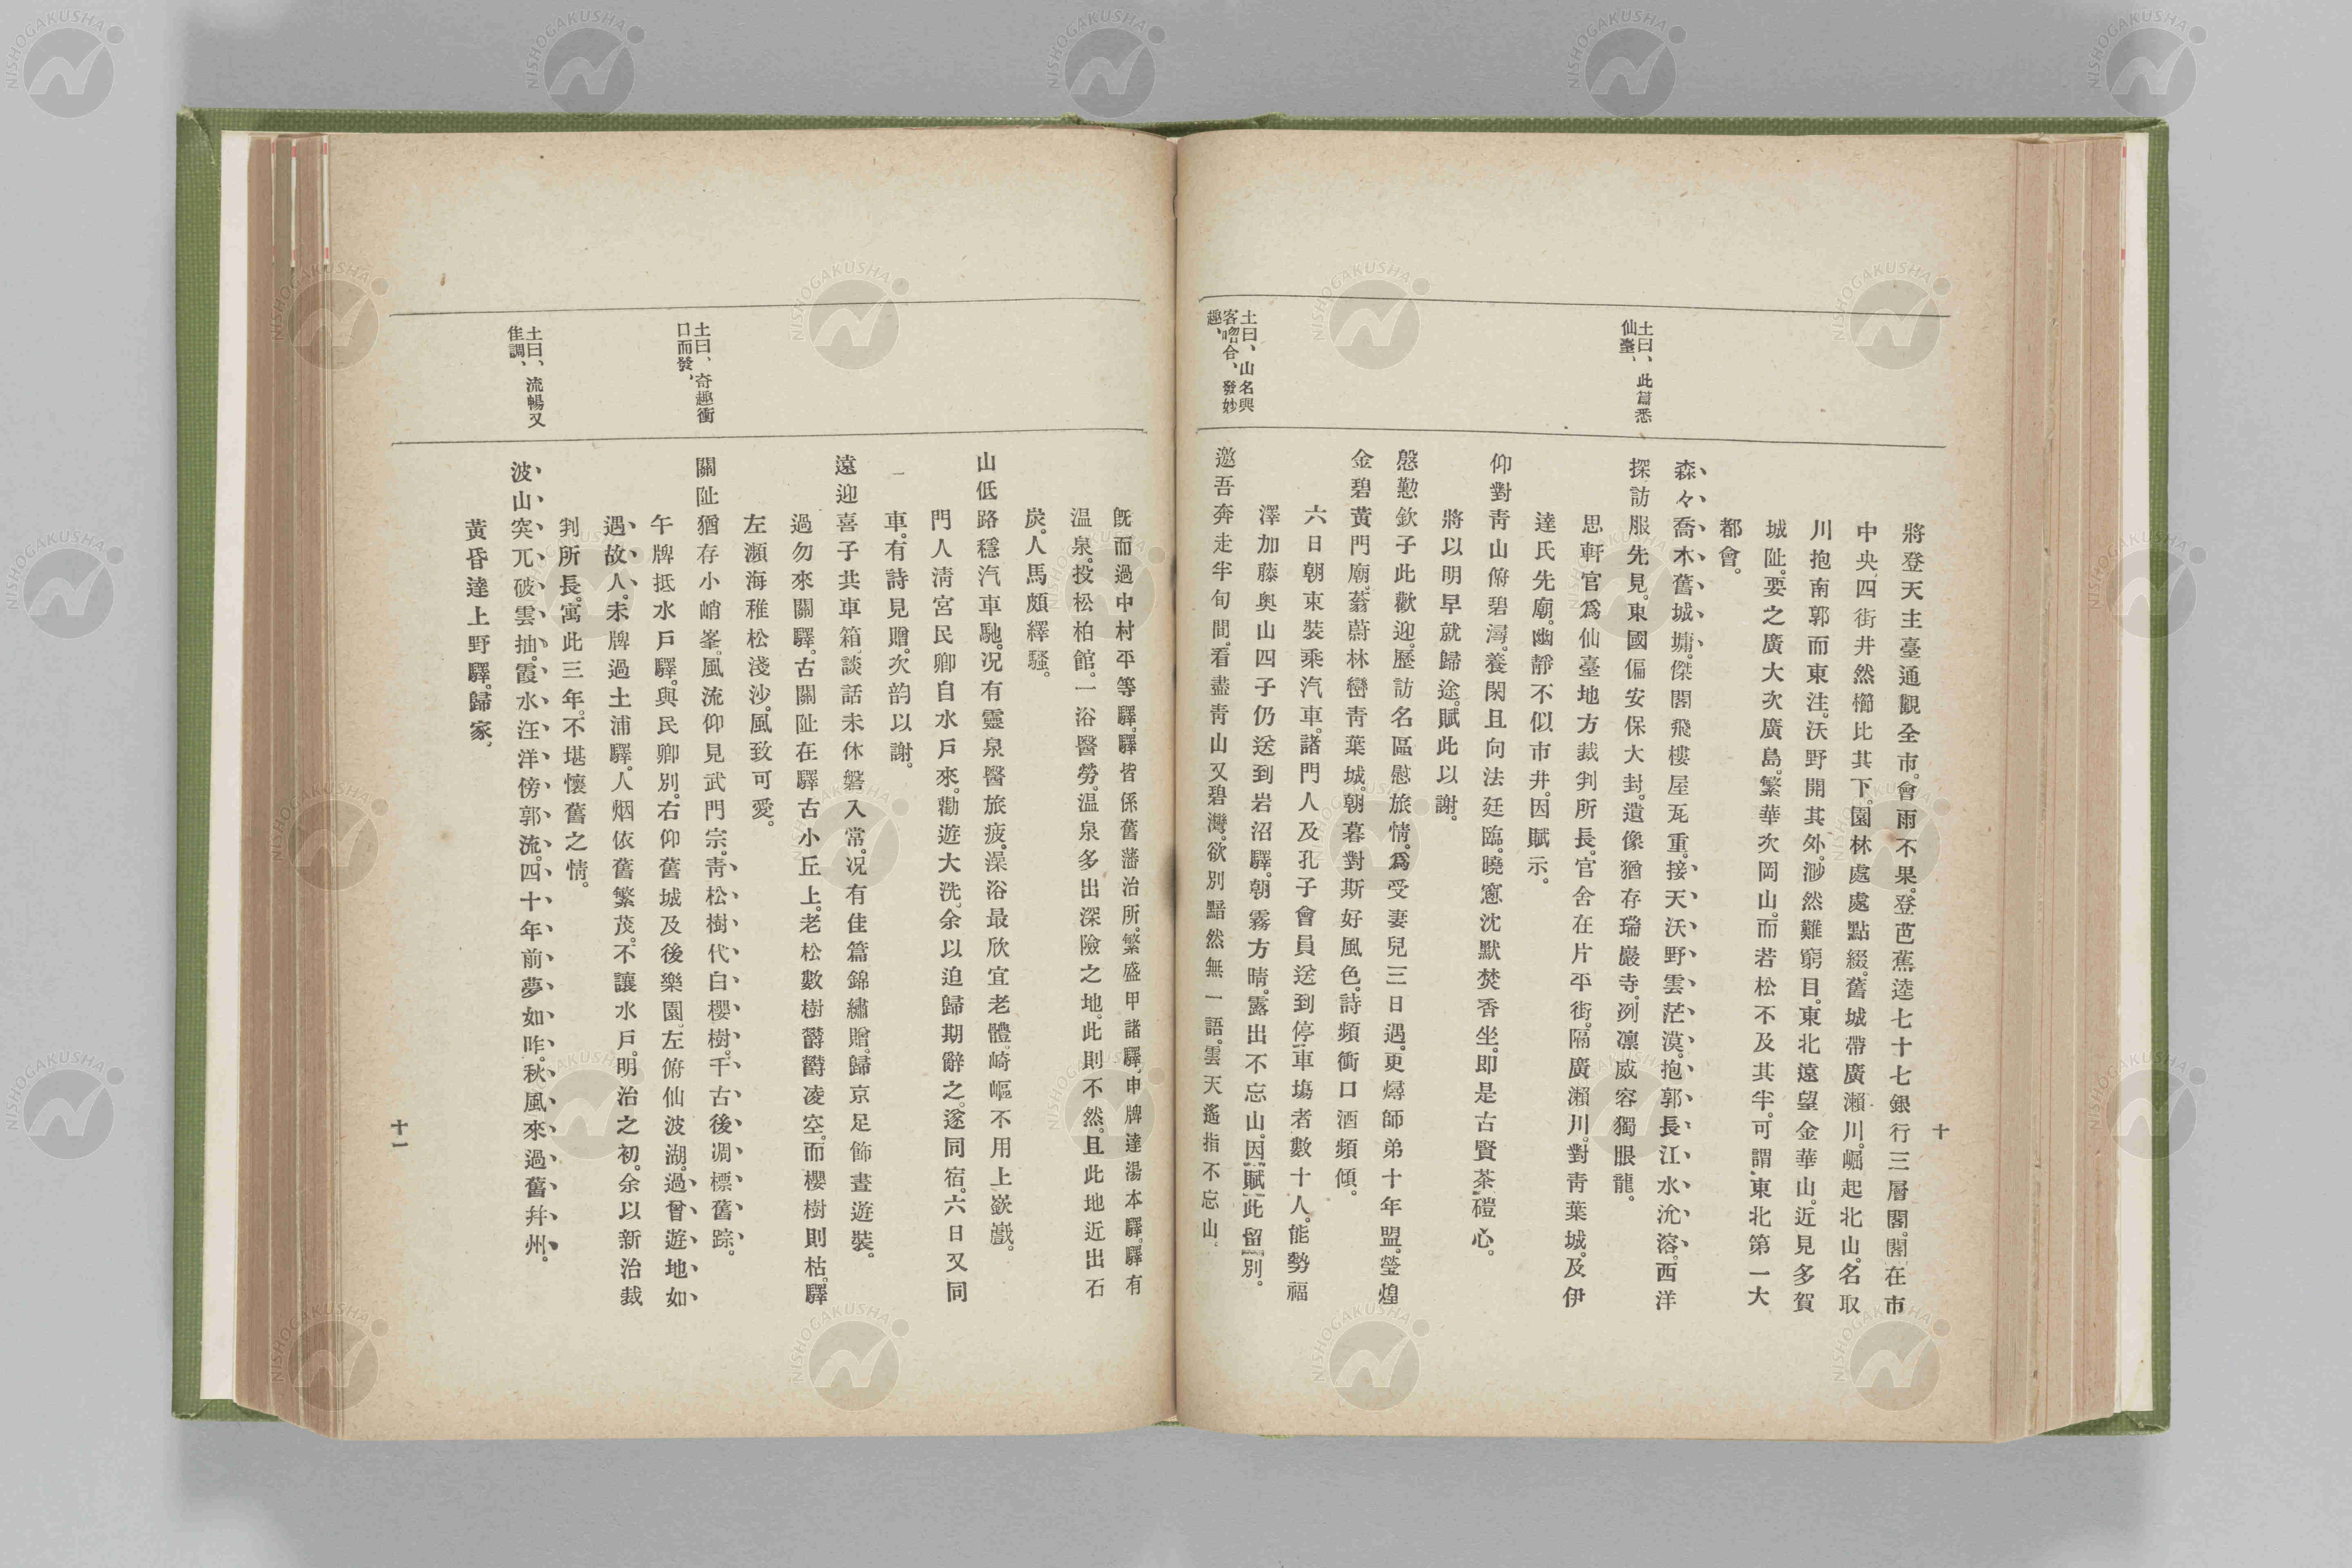 十
將登天主臺通觀全市。會雨不果。登芭蕉逵七十七銀行三層閣。閣在市
中央、四街井然櫛比其下。園林處處點綴。舊城帶廣瀨川。崛起北山。名取
川抱南郭而東注。沃野開其外。渺然難窮目。東北遠望金華山。近見多賀
城阯。要之廣大次廣島。繁華次岡山。而若松不及其半。可謂東北第一大
都會。
土曰、此篇悉
仙臺、
森々喬木舊城墉。傑閣飛樓屋瓦重。接天沃野雲茫漠。抱郭長江水沇溶。西洋
探訪服先見。東國偏安保大封。遺像猶存瑞巖寺。冽凛威容獨眼龍。
思軒官爲仙臺地方裁判所長。官舍在片平街。隔廣瀨川。對青葉城。及伊
達氏先廟。幽靜不似市井。因賦示。
仰對青山俯碧潯。養閑且向法廷臨。曉窻沈默焚香坐。即是古賢茶礚心。
將以明早就歸途。賦此以謝。
慇懃欽子此歡迎。歷訪名區慰旅情。爲受妻兒三日遇。更燖師弟十年盟。瑩煌
金碧黃門廟。蓊蔚林巒青葉城。朝暮對斯好風色。詩頻衝口酒頻傾。
六日朝束裝乘汽車。諸門人及孔子會員送到停車塲者數十人。能勢福
澤加藤奥山四子仍送到岩沼驛。朝霧方晴。露出不忘山。因賦此留別。
土曰、山名與
客唿合、發妙
趣、
邀吾奔走半旬間。看盡青山又碧灣。欲別黯然無一語。雲天遙指不忘山。
既而過中村平等驛。驛皆係舊藩治所。繁盛甲諸驛。申牌達湯本驛。驛有
温泉。投松柏館。一浴醫勞。温泉多出深險之地。此則不然。且此地近出石
炭。人馬頗繹騷。
山低路穩汽車馳。况有靈泉醫旅疲。澡浴最欣宜老體。崎嶇不用上嶔巇。
門人淸宮民卿自水戸來。勸遊大洗。余以迫歸期辭之。遂同宿。六日又同
一車。有詩見贈。次韵以謝。
遠迎喜子共車箱。談話未休磐入常。况有佳篇錦繡贈。歸京足飾晝遊裝。
過勿來關驛。古關阯在驛古小丘上。老松數樹欝欝凌空。而櫻樹則枯。驛
左瀕海稚松淺沙。風致可愛。
土曰、奇趣衝
口而發、
關阯猶存小峭峯。風流仰見武門宗。靑松樹代白櫻樹。千古後凋標舊踪。
午牌抵水戸驛。與民卿別。右仰舊城及後樂園、左俯仙波湖。過曾遊地如
遇故人。未牌過土浦驛。人烟依舊繁茂。不讓水戸。明治之初。余以新治裁
判所長。寓此三年。不堪懷舊之情。
土曰、流暢又
佳調、
波山突兀破雲抽。霞水汪洋傍郭流。四十年前夢如昨。秋風來過舊幷州。
黃昏達上野驛。歸家、
十一
NISHOGAKUSHA